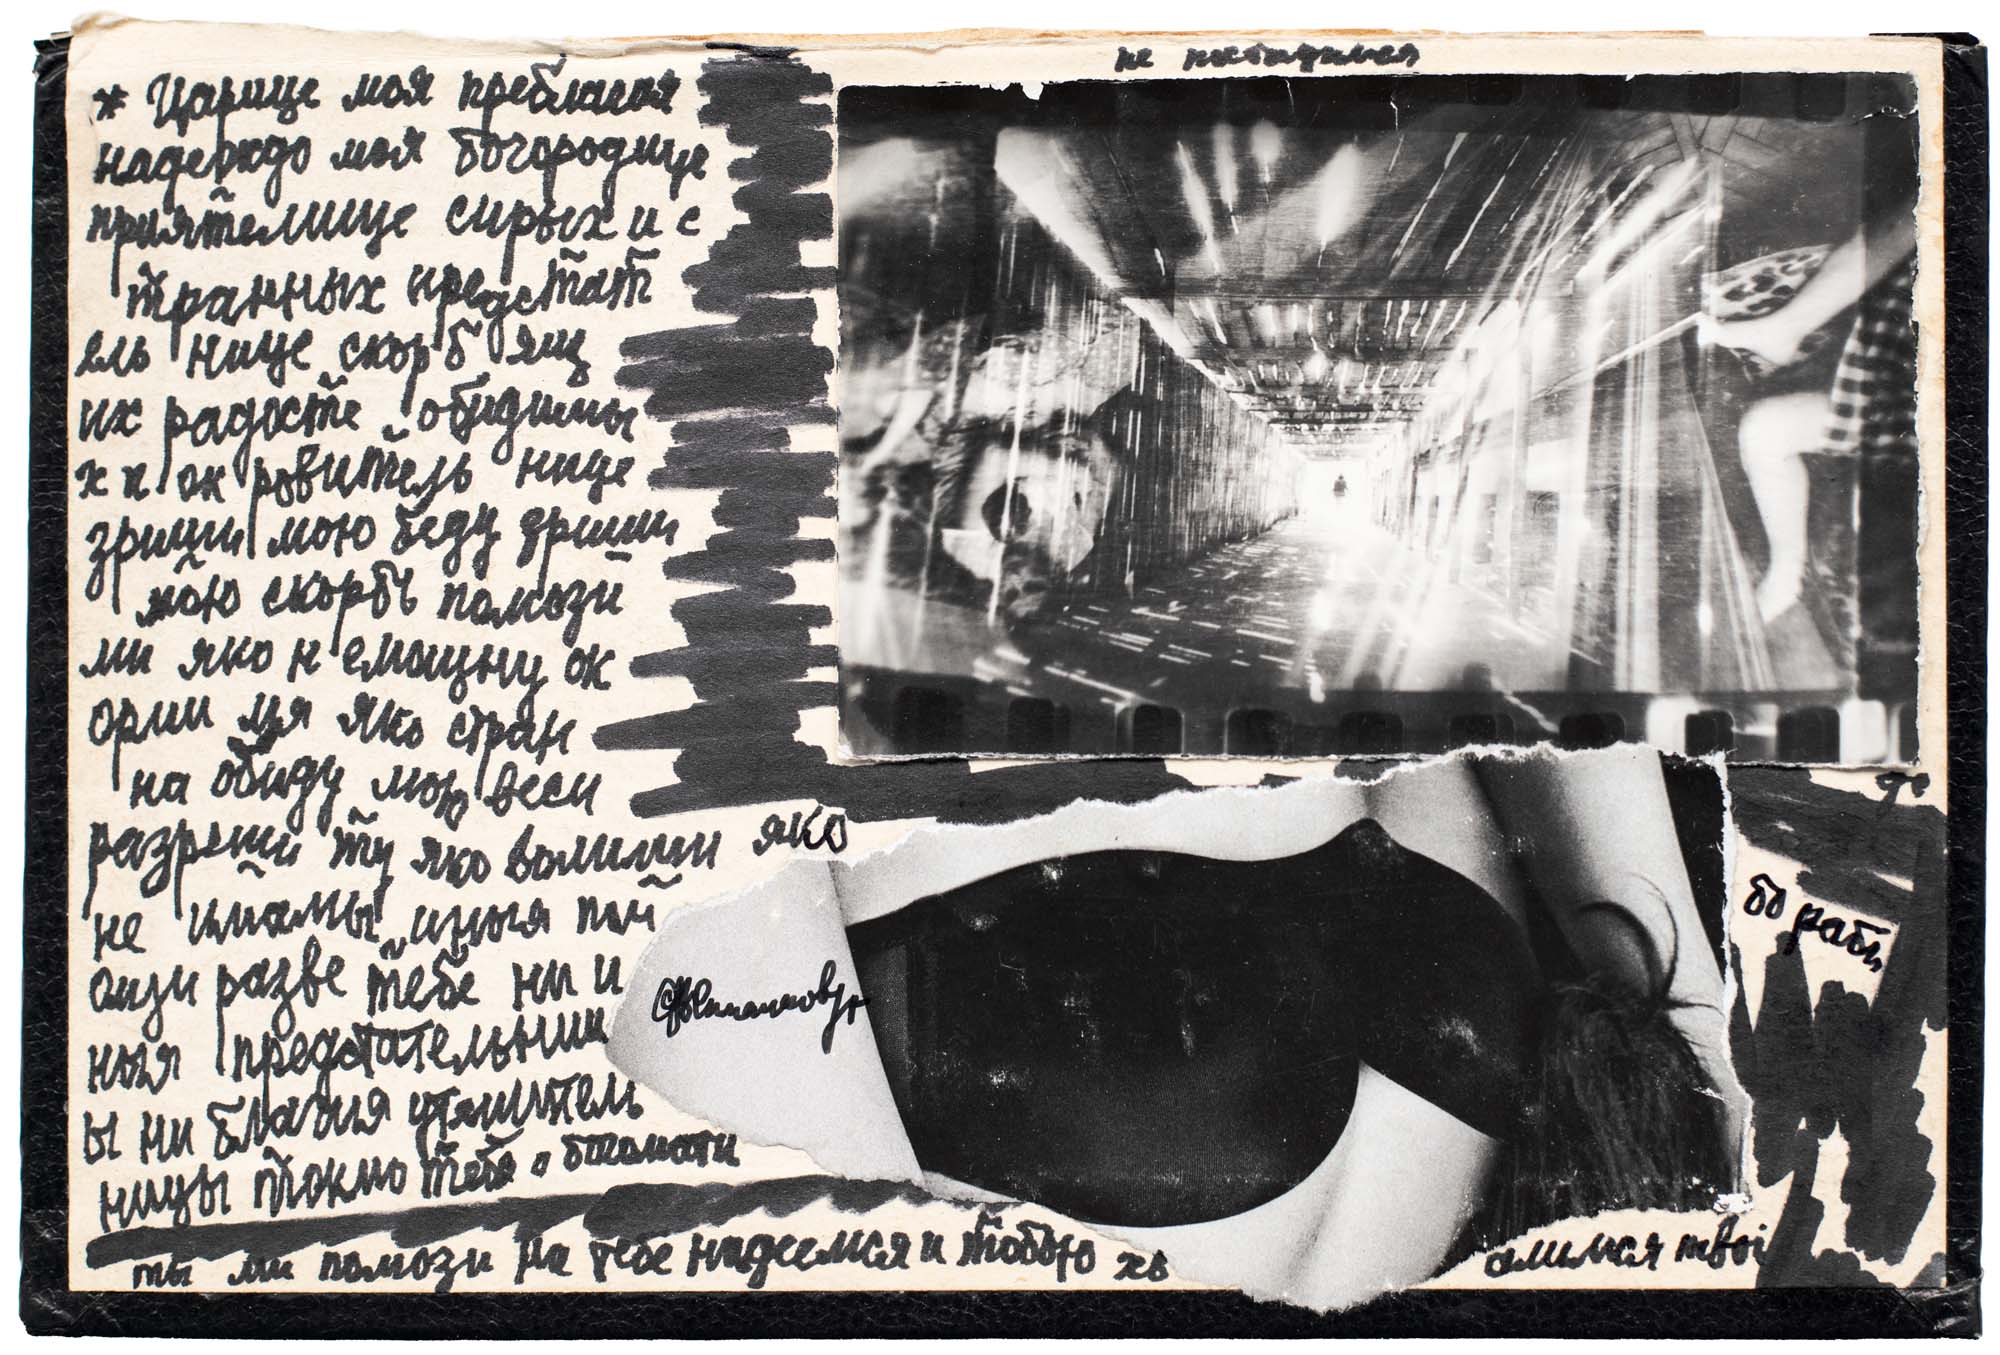 не постыдимся
* Царице моя преблагая
надеждо моя богородице
приятелище сирых и с
транных предстат
ель нице скорб ящ
их радосте обидимы
х п ок ровитель нице
зриши мою беду зриши
мою скорбь помози
ми яко н емощну ок
орми мя яко стран
на обиду мою веси
разреши ту яко волиши яко
не имамы иныя пом
ощи разве тебе ни и
ныя предстательниц
ы ни благия утешитель
ницы токмо тебе о богомати
ты ми помози на тебе надеемся и тобою хв
алимся твоі
бо раби